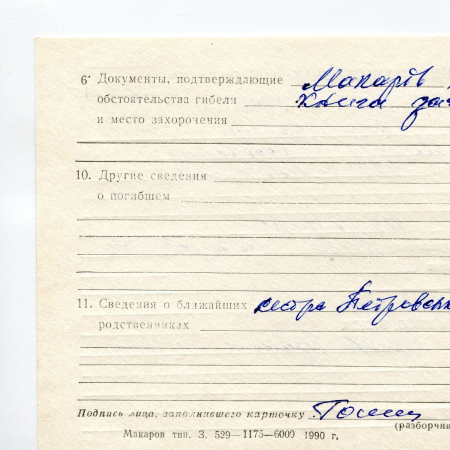 6· Документы, подтверждающие Макарів
обстоятельства гибели Книга
и место захоронения
10. Другие сведения
о погибшем
11. Сведения о ближайших сестра Петровськ
родственниках
Подпись лица, заполнившего карточку
(разборчив
Макаров тип. З. 529—1175—6000 1990 г.